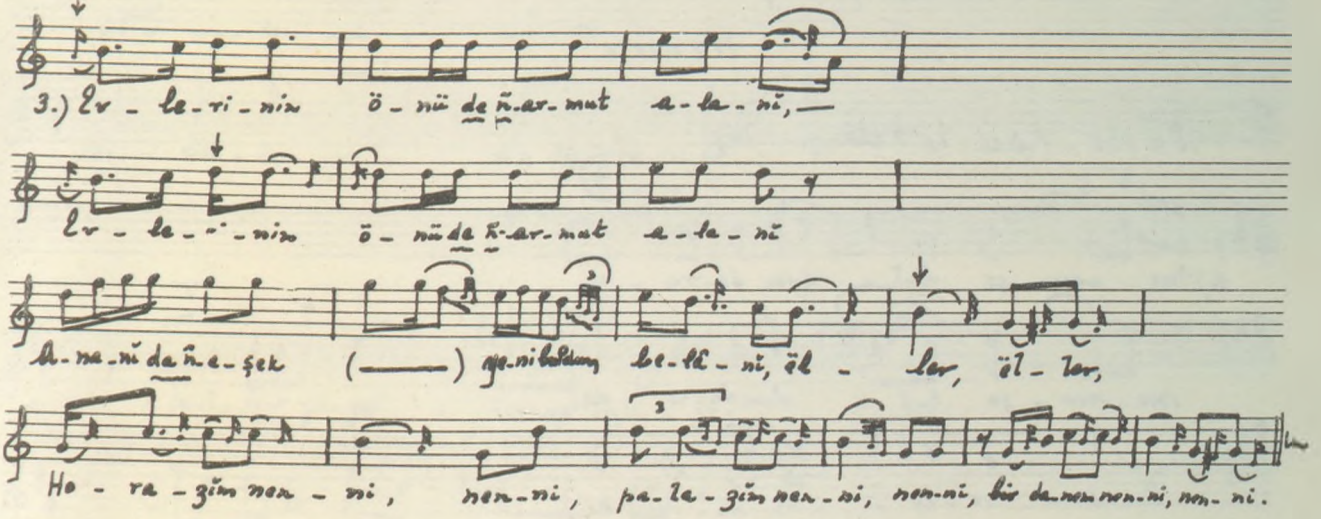 3.) Ev - le - ri - nin ö - nü de n̄-ar-mut a - la - nĭ, —
Ev - le - ri - nin ö - nü de n̄-ar-mut a - la - nĭ
A - na - nĭ da n̄ - e - şek (———) ye-ni buldum be - lâ - nĭ, ël - ler, ël - ler,
Ho - ra - zĭm nen - ni, nen - ni, pa - la - zĭm nen - ni, nen-ni, bir da-nem nen-ni, nen - ni.